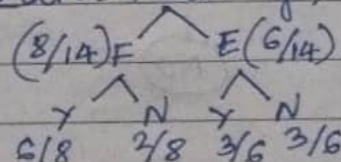 (8/14) F E (6/14)
Y N Y N
6/8 2/8 3/6 3/6